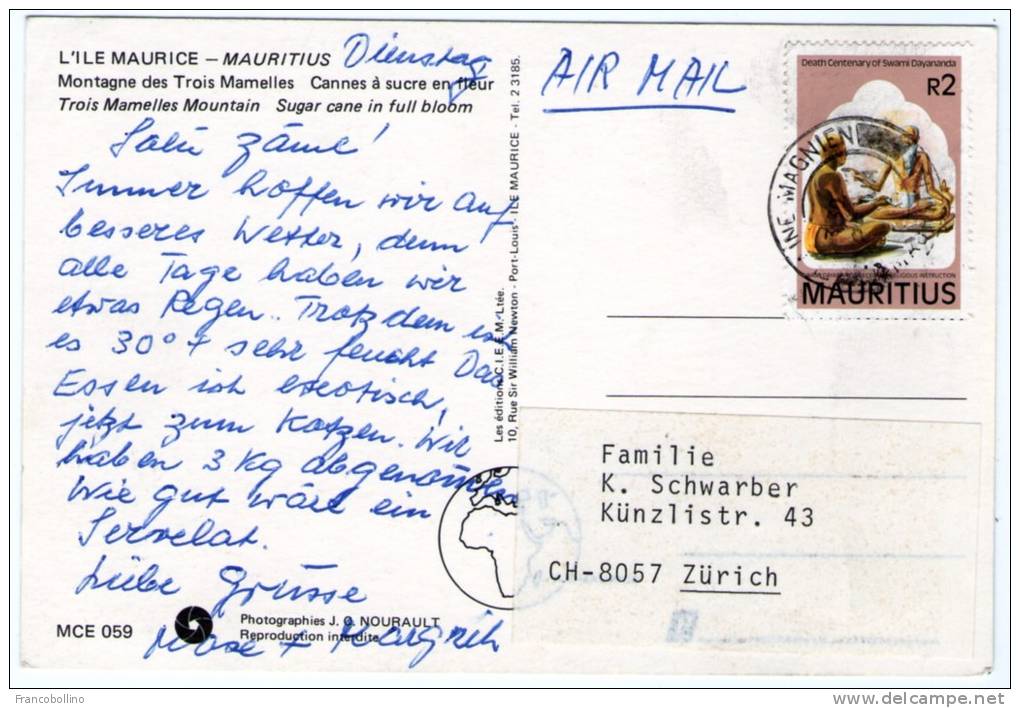 L'ILE MAURICE – MAURITIUS
Montagne des Trois Mamelles Cannes à sucre en fleur
Trois Mamelles Mountain Sugar cane in full bloom
Dienstag
Salü zäme!
Immer hoffen wir auf
besseres Wetter, denn
alle Tage haben wir
etwas Regen.. Trotzdem ist
es 30° + sehr feucht Das
Essen ist exotisch,
jetzt zum Kotzen. Wir
haben 3 Kg abgenommen
Wie gut wäre ein
Servelat.
Liebe Grüsse
+ Margrith
MCE 059
Photographies J. G. NOURAULT
Reproduction interdite
Les éditions C.I.E.E.M. Ltée.
10, Rue Sir William Newton - Port-Louis - ILE MAURICE - Tel. 2 3185.
AIR MAIL
Death Centenary of Swami Dayananda
R2
MAURITIUS
INE MAGNIEN
Familie
K. Schwarber
Künzlistr. 43
CH-8057 Zürich
Francobollino
delcampe.net